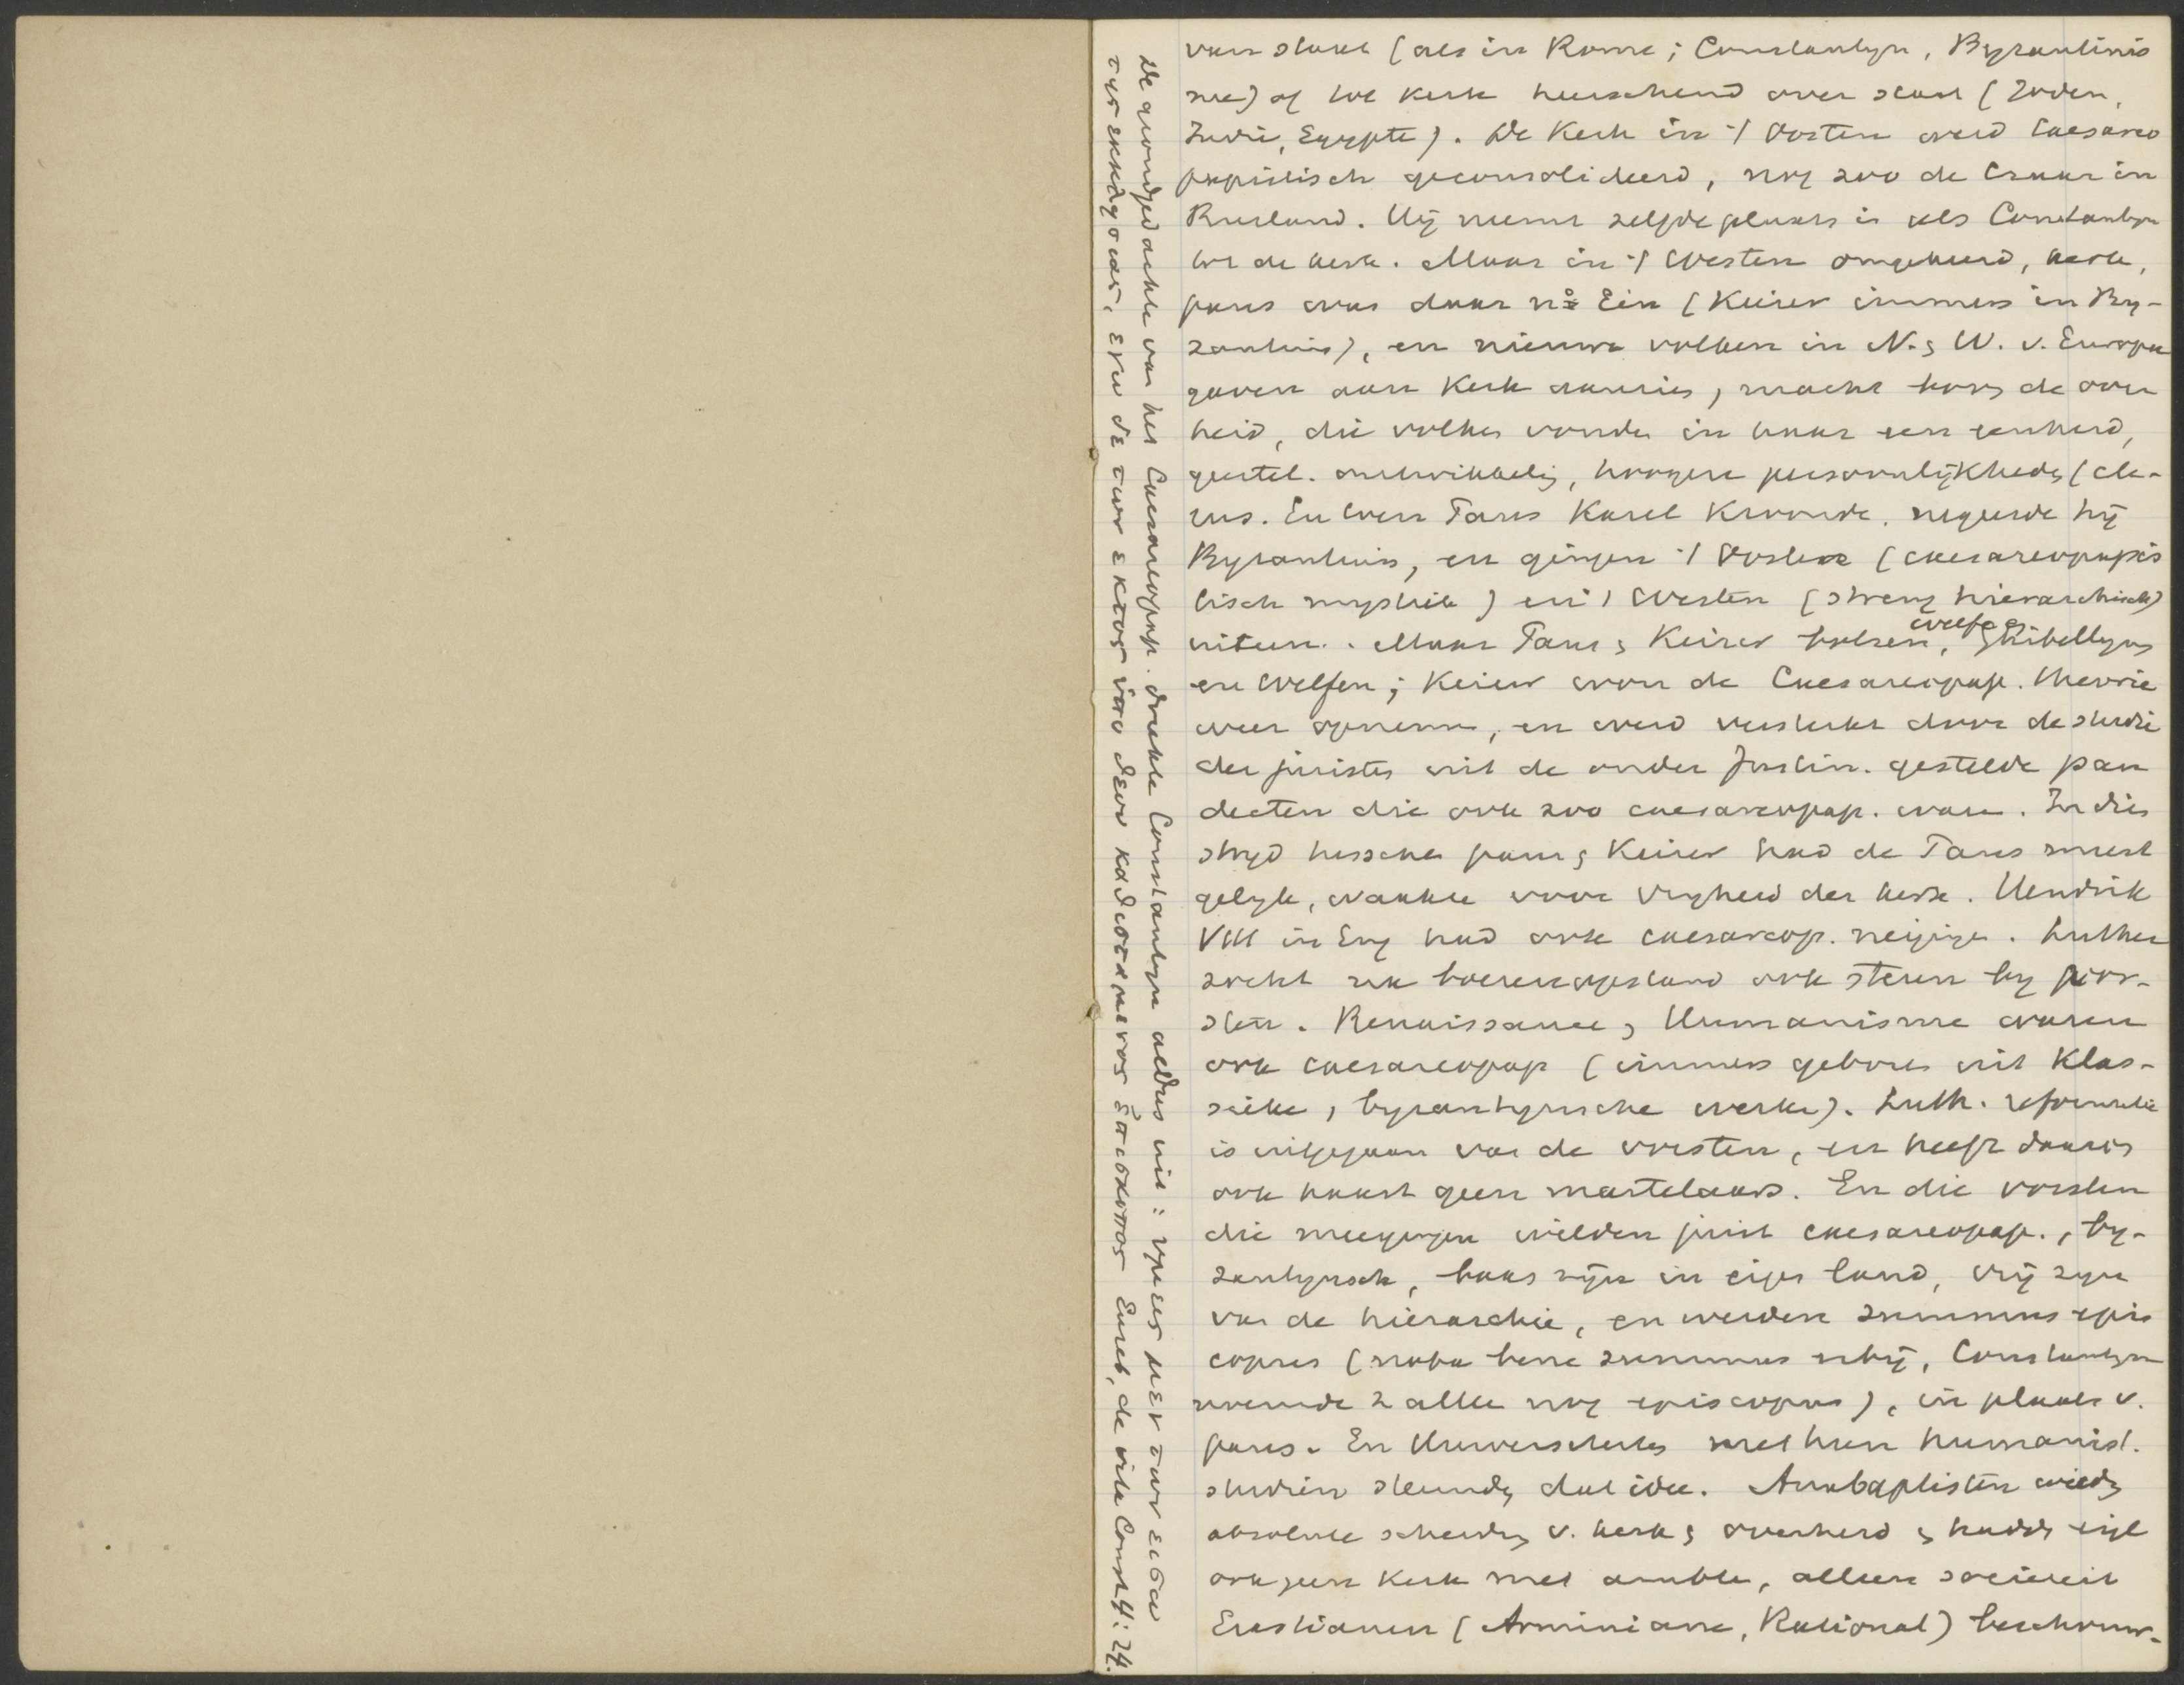 van staat (als in Rome; Constantyn, Byzantinis
me) of tot kerk heerschend over staat (Joden,
Indië, Egypte). De Kerk in 't Oosten werd Caesareo
papistisch geconsolideerd, nog zoo de Czaar in
Rusland. Hij neemt zelfde plaats in als Constantyn
tot de kerk. Maar in 't Westen omgekeerd, kerk,
paus was daar no Een (Keizer immers in By-
zantium), en nieuwe volken in N. & W. v. Europa
gaven aan Kerk , macht  de over
heid, die volken vonden in haar een eenheid,
geestel. ontwikkeling, hoogere persoonlijkheden (cle-
rus. En toen Paus Karel Kroonde, negeerde hij
Byzantium, en gingen 't Oosten (caesareopapis
tisch mystiek) en 't Westen (streng hierarchisch)
uiteen. Maar Paus & Keizer botsen, Ghibellyns
en Welfen; Keizer  de Caesareopap. theorie
weer opnemen, en werd versterkt door de studie
der juristen uit de onder Justin. gestelde pan
decten die ook zoo caesareopap. waren. In dien
stryd tusschen paus & Keizer had de Paus meest
gelyk, waakte voor vryheid der kerk. Hendrik
VIII in Eng had ook caesareop. neiging. Luther
zocht na boerenopstand ook steun by vor-
sten. Renaissance & Humanisme waren
ook caesareopap (immers geboren uit Klas-
sieke, byzantynsche werken). Luth. reformatie
is uitgegaan van de vorsten, en heeft daarom
ook haast geen martelaars. En die vorsten
die meegingen wilden juist caesareopap., by-
zantynsch, baas zyn in eigen land, vrij zyn
van de hierarchie, en werden summus epis
copus (nota bene summus erbij, Constantyn
noemde z alleen nog episcopus), in plaats v.
paus. En Universiteiten met hun humanist.
studien steunden dat idee. Anabaptisten wilden
absolute scheiding v. kerk & overheid & hadden eigl
ook geen Kerk met ambten, alleen societeit
Erastianen (Arminiane, Rational) beschouw-
De grondgedachte van het Caesareopap. drukte Constantyn aldus uit: υμεις μεν των εισω
της εκκλησιας, εγω δε των εκτος υπο θεου καθισταμενος επισκοπος Euseb, de vita Const 4:24.